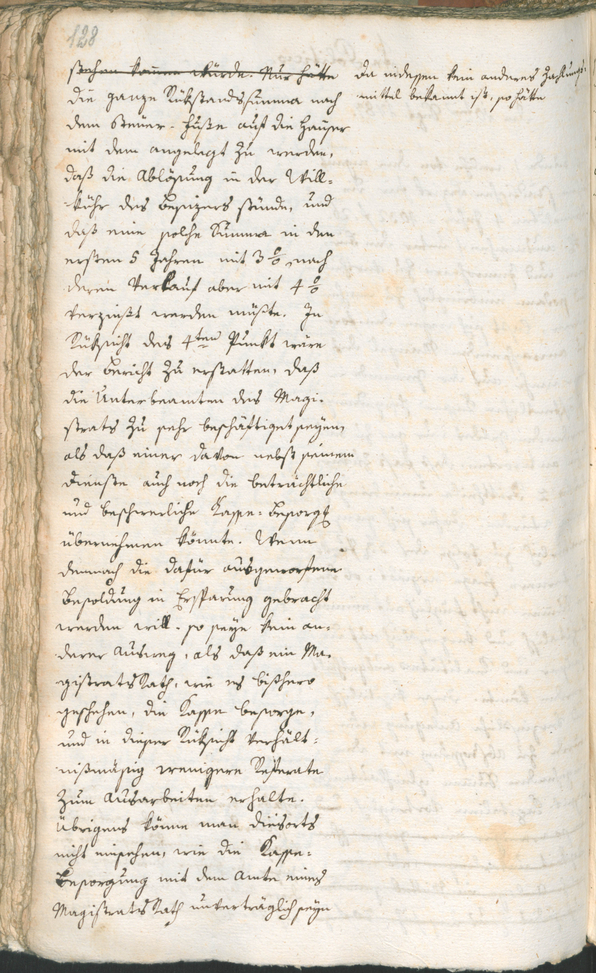 128
stehen können würde. Nur hätte
da indessen kein anderes Zahlungs-
mittel bekannt ist, so hätte
die ganze Rükstandssumma nach
dem Steuer-Fuße auf die Häuser
mit dem angelegt zu werden,
daß die Ablösung in der Will-
kühr des Besizers stünde, und
daß eine solche Summa in den
ersten 5 Jahren mit 3 %, nach
deren Verlauf aber mit 4 %
verzinßt werden müßte. In
Rüksicht des 4ten Punkt wäre
der Bericht zu erstatten, daß
die Unterbeamten des Magi-
strats zu sehr beschäftiget seyen,
als daß einer davon nebst seinem
Dienste auch noch die beträchtliche
und beschwerliche Kasse-Besorgg
übernehmen könnte. Wenn
demnach die dafür ausgeworfene
Besoldung in Ersparung gebracht
werden will, so seye kein an-
derer Ausweg, als daß ein Ma-
gistrats Rath, wie es bißhero
geschehen, die Kasse besorge,
und in dieser Rüksicht verhält-
nißmäßig wenigere Referate
zum Ausarbeiten erhalte.
Übrigens könne man dießorts
nicht einsehen, wie die Kasse-
Besorgung mit dem Amte eines
Magistrats Rath unverträglich seyn